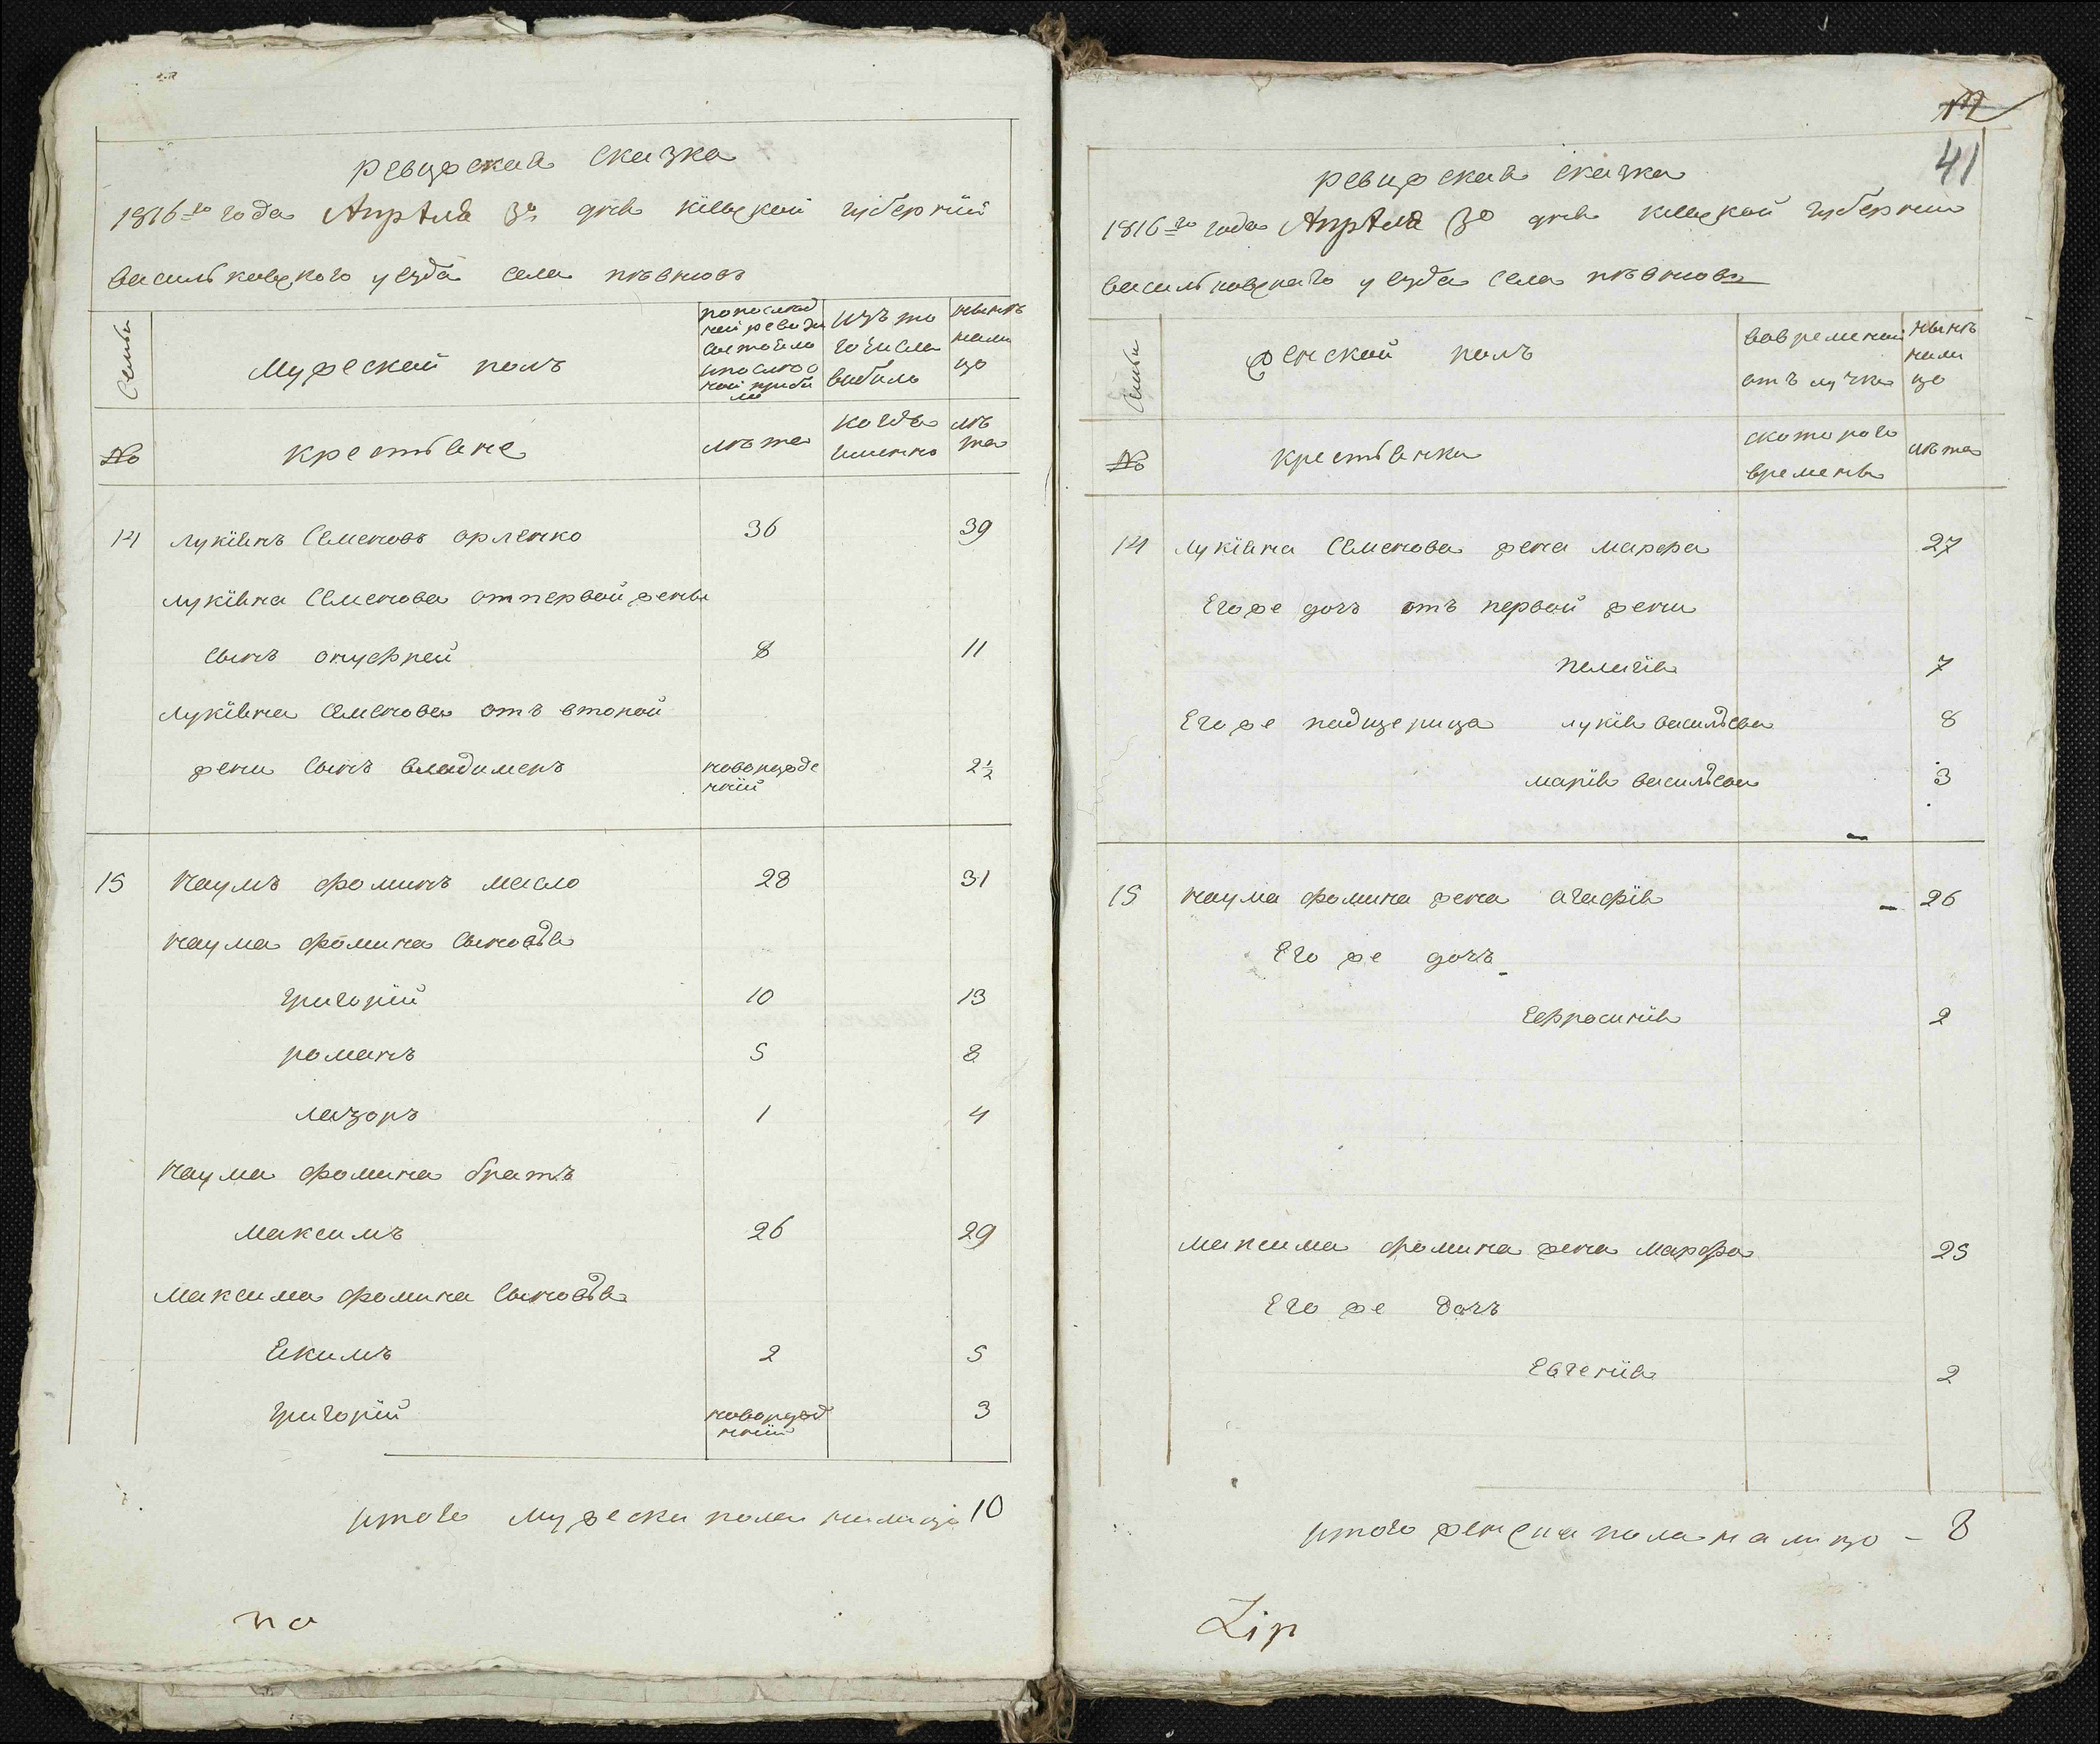 ревизская сказка
1816го года Апреля 30 дня кіевской губерніи
васильковского уезда села
Семьи
Мужеской полъ
по последней ревизіи состояло и после оной прибыло
изъ того числа выбыло
нынѣ налицо
№
крестьяне
лѣта
когда именно
лѣта
14 лукіянъ Семеновъ орленко 36 39
лукіяна Семенова отпервой жены
сынъ онуфрей 8 11
лукіяна Семенова отъ второй
жены сынъ владимеръ новорожденній 2½
15 наумъ фоминъ масло 28 31
наума фомина сыновья
григорій 10 13
романъ 5 8
лазоръ 1 4
наума фомина братъ
максимъ 26 29
максима фомина сыновья
Екимъ 2 5
григорій новорожденній 3
итого мужеска пола налицо 10
по
41
ревизская сказка
1816го года Апреля 30 дня кіевской губерніи
васильковскаго уезда села
Семьи
Женской полъ
вовременной отълучке
нынѣ налицо
№
крестьянки
скоторого времены
лѣта
14 лукіяна Семенова жена марфа 27
Егоже дочъ отъ первой жени
пелагія 7
Егоже падщерица лукія васильева 8
марія васильева 3
15 наума фомина жена агафія 26
Его же дочъ
Ефросинія 2
максима фомина жена марфа 25
Его же дочъ
Евгенія 2
итого женска пола налицо – 8
Lip